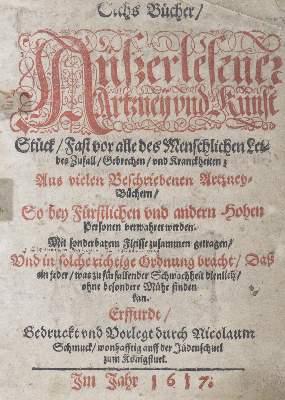 Sechs Bücher/
Außerlesner
Artzney vnd Kunst
Stück/ Fast vor alle des Menschlichen Lei-
bes Zufall/ Gebrechen/ vnd Kranckheiten:
Aus vielen Beschriebenen Artzney-
Büchern/
So bey Fürstlichen vnd andern Hohen
Personen verwahret werden.
Mit sonderbarem Fleisse zusammen getragen/
Vnd in solche richtige Ordnung bracht/ Daß
ein jeder/ was zu für fallender Schwachheit dienlich/
ohne besondere Mühe finden
kan.
Erffurdt/
Gedruckt vnd Vorlegt durch Nicolaum
Schmuck/ wonhafftig auff der Jüdenschuel
zum Königstuel.
Im Jahr 1617.